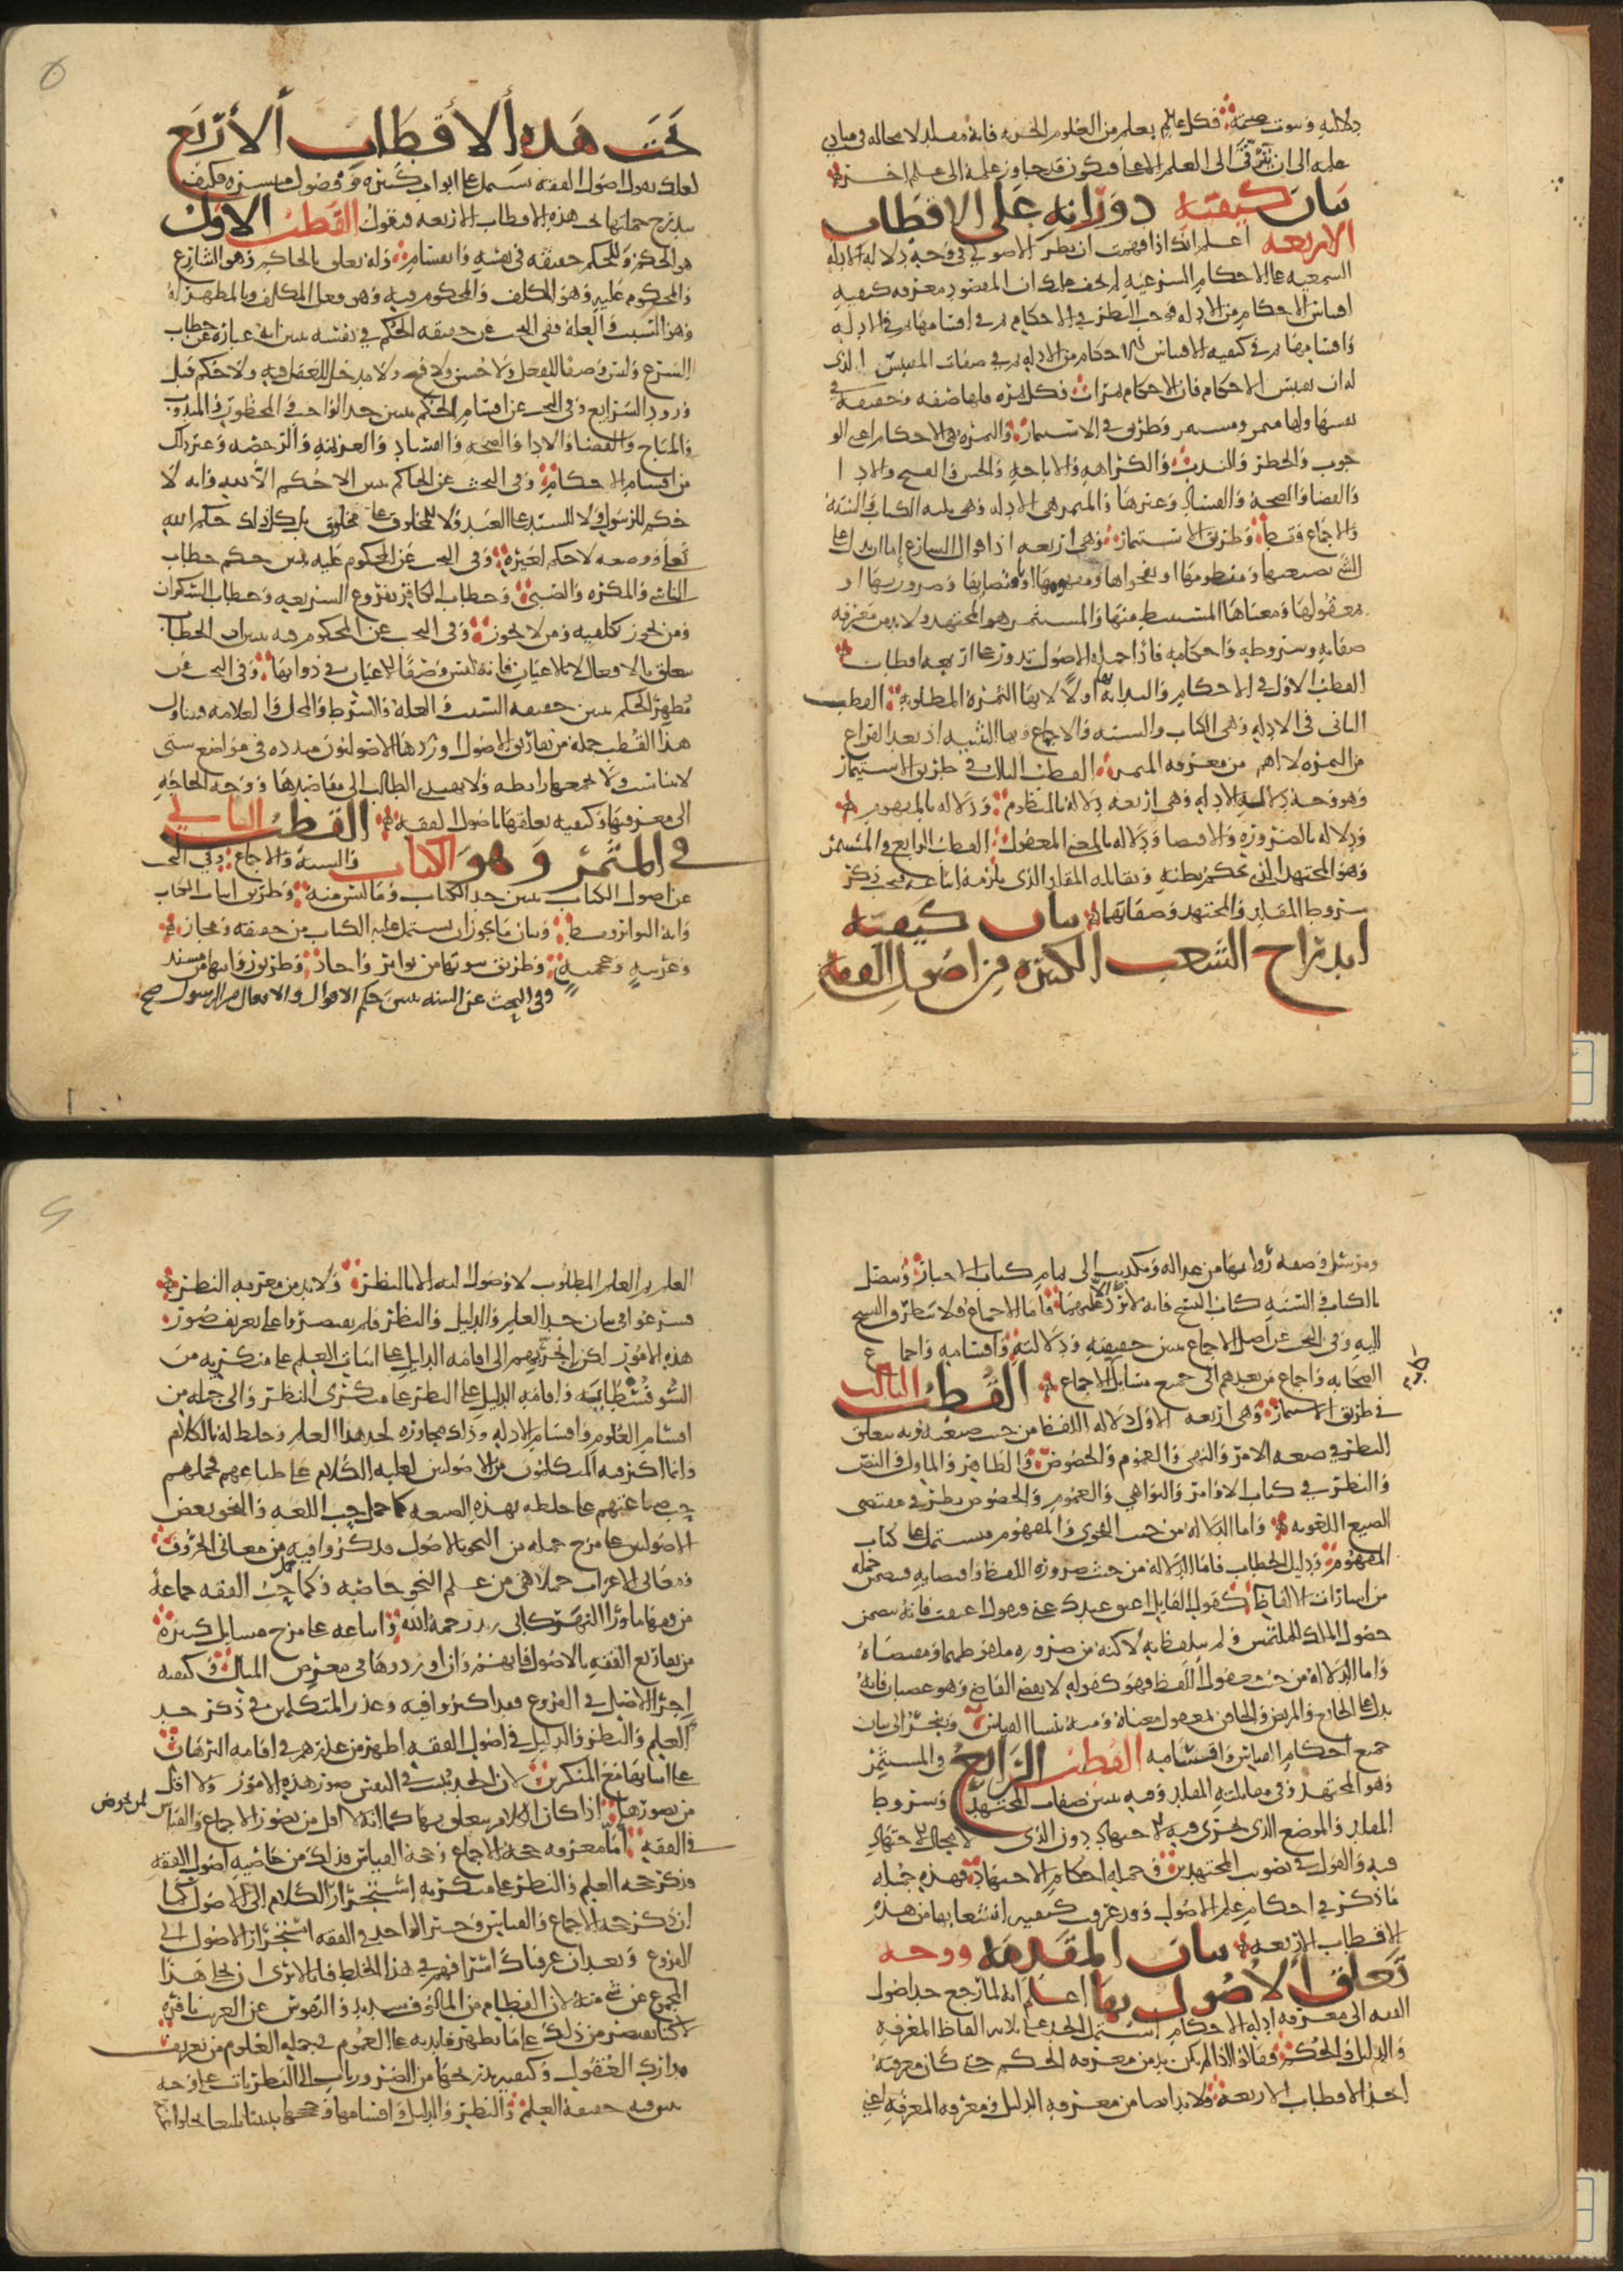 دلالته وثبوت صحته فكل عالم بعلم من العلوم الجزئية فانه مقلد لا محاله في مبادي
علمه الى ان يترقى الى العلم الاعلى فيكون قد جاوز علمه الى علم اخر
بيان كيفيته دورانه على الاقطاب
الاربعه اعلم انك اذا فهمت ان نظر الاصولي في وجوه دلاله الادله
السمعيه على الاحكام الشرعيه لم يخف عليك ان المقصود معرفه كيفيه
اقتباس الاحكام من الادله فوجب النظر في الاحكام ثم في اقسامها ثم في الادله
واقسامها ثم في كيفيه اقتباس الاحكام من الادله ثم في صفات المقتبس الذي
له ان يقتبس الاحكام فان الاحكام ثمرات فكل ثمره فلها صفه وحقيقه في
نفسها ولها مثمر ومستثمر وطريق في الاستثمار والثمره هي الاحكام اعني الو
جوب والحظر والندب والكراهه والاباحه والحسن والقبح والادا
والقضا والصحه والفساد وغيرها والمثمر هي الادله وهي ثلثه الكتاب والسنه
والاجماع فقط وطريق الاستثمار وهي اربعه اذا قوال الشارع اما ان يدل على
الشي بصيغتها ومنظومها او بفحواها ومفهومها او باقتضايها وضرورتها او
بمعقولها ومعناها المستنبط منها والمستثمر هو المجتهد ولا بد من معرفه
صفاته وشروطه واحكامه فاذا جمله الاصول تدور على اربعه اقطاب
القطب الاول في الاحكام والبدايه بها اولا لانها الثمره المطلوبه القطب
الثاني في الادله وهي الكتاب والسنه والاجماع وبها التثنيه اذ بعد الفراغ
من الثمره لا اهم من معرفه المثمر القطب الثالث في طريق الاستثمار
وهو وجه دلاله الادله وهي اربعه دلاله بالمنظوم ودلاله بالمفهوم
ودلاله بالضروره والاقتضا ودلاله بالمعنى المعقول القطب الرابع والمستثمر
وهو المجتهد الذي يحكم بظنه ويقابله المقلد الذي يلزمه اتباعه فيجب ذكر
شروط المقلد والمجتهد وصفاتهما بيان كيفيته
اندراج الشعب الكثيره من اصول الفقه
تحت هذه الاقطاب الاربع
لعلك تقول اصول الفقه يشتمل على ابواب كثيره وفصول منتشره فكيف
يندرج جملتها تحت هذه الاقطاب الاربعه فنقول القطب الاول
هو الحكم وللحكم حقيقه في نفسه وانقسام وله تعلق بالحاكم وهو الشارع
والمحكوم عليه وهو المكلف والمحكوم فيه وهو فعل المكلف وبالمظهر له
وهو السبب والعله ففي البحث عن حقيقه الحكم في نفسه يتبين انه عباره عن خطاب
الشرع وليس وصفا للفعل ولا حسن ولا قبح ولا مدخل للعقل فيه ولا حكم قبل
ورود الشرايع وفي البحث عن اقسام الحكم يتبين حد الواجب والمحظور والمندوب
والمباح والقضا والادا والصحه والفساد والعزيمه والرخصه وغير ذلك
من اقسام الاحكام وفي البحث عن الحاكم يتبين الا حكم الا لله وانه لا
حكم للرسول ولا للسيد على العبد ولا لمخلوق على مخلوق بل كل ذلك حكم الله
تعالى ووضعه لا حكم لغيره وفي البحث عن المحكوم عليه يتبين حكم خطاب
الناسي والمكره والصبي وخطاب الكافر بفروع الشريعه وخطاب السكران
ومن يجوز تكليفه ومن لا يجوز وفي البحث عن المحكوم فيه يتبين ان الخطاب
يتعلق بالافعال لا بالاعيان فانه ليس وصفا للاعيان في ذواتها وفي البحث عن
مظهر الحكم يتبين حقيقه السبب والعله والشرط والمحل والعلامه فيتناول
هذا القطب جمله من تفاريق الاصول اوردها الاصوليون مبدده في مواضع شتى
لا تتناسب ولا تجمعها رابطه ولا يهتدي الطالب الى مقاصدها ووجه الحاجه
الى معرفتها وكيفيه تعلقها باصول الفقه القطب الثاني
في المثمر وهو الكتاب والسنه والاجماع وفي البحث
عن اصول الكتاب يتبين حد الكتاب وما ليس منه وطريق اثبات الكتاب
وانه التواتر فقط وبيان ما يجوز ان يشتمل عليه الكتاب من حقيقه ومجاز
وعربيه وعجميه وطريق ثبوتها من تواتر واحاد وطريق روايتها من مسند
وفي البحث عن السنه يتبين حكم الاقوال والافعال من الرسول صح
ومرسل وصفه رواتها من عداله وتكذيب الى تمام كتاب الاخبار ويتصل
بالكتاب والسنه كتاب النسخ فانه لا يرد الا عليهما فاما الاجماع فلا يتطرق النسخ
اليه وفي البحث عن اصل الاجماع يتبين حقيقته ودلالته واقسامه واجماع
الصحابه واجماع من بعدهم الى جميع مسايل الاجماع القطب الثالث
في طريق الاستثمار وهي اربعه الاول دلاله اللفظ من حيث صيغته وبه يتعلق
النظر في صيغه الامر والنهي والعموم والخصوص والظاهر والماول والنص
والنظر في كتاب الاوامر والنواهي والعموم والخصوص نظر في مقتضى
الصيغ اللغويه واما الدلاله من حيث الفحوى والمفهوم فيشتمل على كتاب
المفهوم ودليل الخطاب فاما الدلاله من حيث ضروره اللفظ واقتضايه فيتضمن جمله
من اشارات الالفاظ كقول القايل اعتق عبدك عني فيقول اعتقت فانه يتضمن
حصول الملك للملتمس ولم يتلفظا به لاكنه من ضروره ملفوظهما ومقتضاه
واما الدلاله من حيث معقول اللفظ فهو كقوله لا يقض القاضي وهو غضبان فانه
يدل على الجايع والمريض والحاقن بمعقول معناه ومنه ينشا القياس وينجر الى بيان
جميع احكام القياس واقسامه القطب الرابع والمستثمر
وهو المجتهد وفي مقابلته المقلد وفيه يتبين صفات المجتهد وشروط
المقلد والموضع الذي يجري فيه الاجتهاد دون الذي لا مجال للاجتهاد
فيه والقول في تصويب المجتهدين وجمله احكام الاجتهاد فهذه جمله
ما ذكر في احكام علم الاصول وقد عرفت كيفيه انشعابها من هذه
الاقطاب الاربعه بيان المقدمه ووجه
تعلق الاصول بها اعلم انه لما رجع حد اصول
الفقه الى معرفه ادله الاحكام اشتمل الحد على ثلاثه الفاظ المعرفه
والدليل والحكم فقالوا اذا لم يكن بد من معرفه الحكم حتى كان معرفته
احد الاقطاب الاربعه فلا بد ايضا من معرفه الدليل ومعرفه المعرفه اعني
العلم ثم العلم المطلوب لا وصول اليه الا بالنظر ولا بد من معرفه النظر
فشرعوا في بيان حد العلم والدليل والنظر فلم يقتصروا على تعريف صور
هذه الامور لكن انجر بهم الى اقامه الدليل على اثبات العلم على منكريه من
السوفسطاييه واقامه الدليل على النظر على منكري النظر والى جمله من
اقسام العلوم واقسام الادله وذلك مجاوزه لحد هذا العلم وخلط له بالكلام
وانما اكثر فيه المتكلمون من الاصوليين لغلبه الكلام على طباعهم فحملهم
حب صناعتهم على خلطه بهذه الصنعه كما حمل حب اللغه والنحو بعض
الاصوليين على مزج جمله من النحو بالاصول فذكروا فيه من معاني الحروف
ومعاني الاعراب جملا هي من علم النحو خاصه وكما حمل حب الفقه جماعه
من فقها ما ورا النهر كابي زيد رحمه الله واتباعه على مزج مسايل كثيره
من تفاريع الفقه بالاصول فانهم وان اوردوها في معرض المثال وكيفيه
اجرا الاصل في الفروع فقد اكثروا فيه وعذر المتكلمين في ذكر حد
العلم والنظر والدليل في اصول الفقه اظهر من عذرهم في اقامه البرهان
على اثباتها مع المنكرين لان الحد يثبت في النفس صور هذه الامور ولا اقل
من تصورها اذا كان الكلام يتعلق بها كما انه لا اقل من تصور الاجماع والقياس لمن يخوض
في الفقه اما معرفه حجه الاجماع وحجه القياس فذلك من خاصيه اصول الفقه
فذكر حجه العلم والنظر على منكريه استجرار الكلام الى الاصول كما
ان ذكر حجه الاجماع والقياس وخبر الواحد في الفقه استجرار الاصول الى
الفروع وبعد ان عرفناك اسرافهم في هذا الخلط فانا لا نرى ان نخلي هذا
المجموع عن شي منه لان الفطام من المالوف شديد والنفوس عن الغريب نافره
لاكنا نقتصر من ذلك على ما يظهر فايدته على العموم في جمله العلوم من تعريف
مدارك العقول وكيفيه تدرجها من الضروريات الى النظريات على وجه
يتبين فيه حقيقه العلم والنظر والدليل واقسامها وحججها تبيينا بليغا تخلو عنه